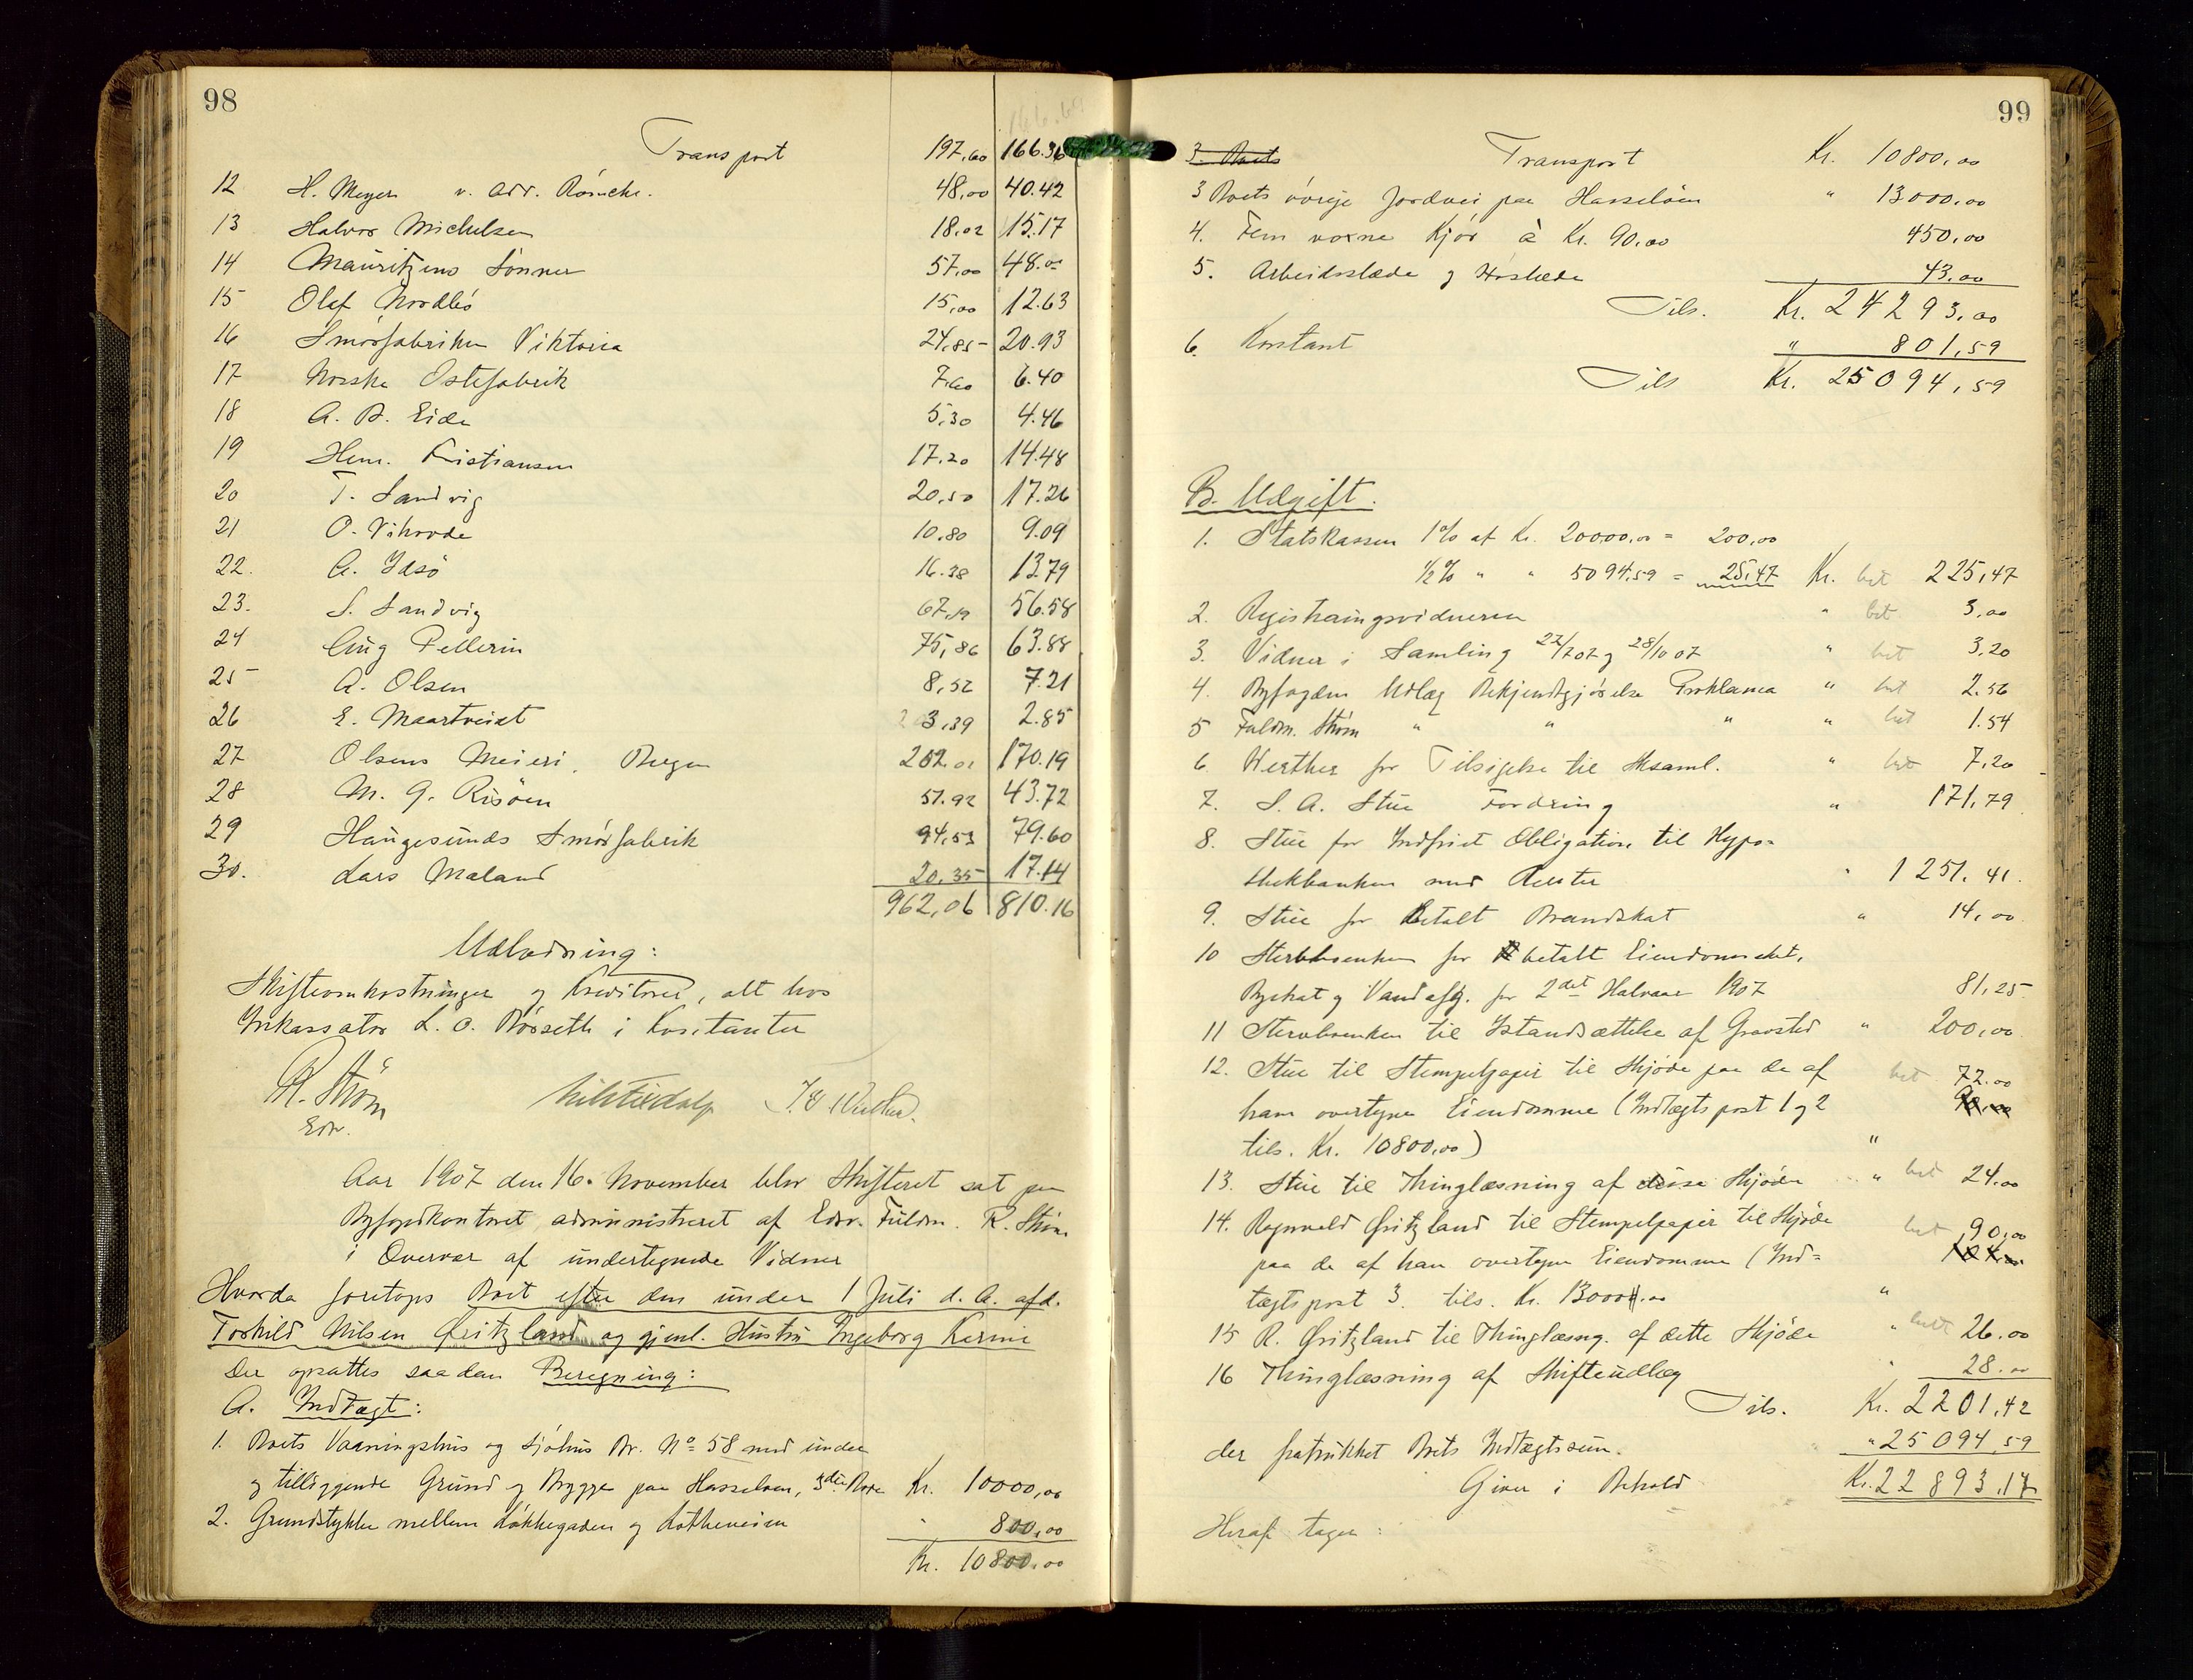 98
Transport 197,60 166.36
12 H. Meyer v. adv. 48,00 40.42
13 Halvor Michelsen 18,02 15.17
14 Mauritzens Sønner 57,00 48.00
15 Olof Nordbø 15,00 12.63
16 Smørfabriken Viktoria 24,85 20.93
17 Norske Ostefabrik 7,60 6.40
18 A. B. Eide 5,30 4.46
19 Henr. Kristiansen 17.20 14.48
20 T. Sandvig 20,50 17.26
21 O. Vikvode 10,80 9.09
22. A. Idsö 16.38 13.79
23. S. Sandvig 67,19 56.58
24 Aug Pellerin 75,86 63.88
25 A. Olsen 8,52 7.21
26 E. Maartveidt 3,39 2.85
27 Olsens Meieri, Bergen 202.01 170.19
28 M. G. Risøen 51.92 43.72
29 Haugesunds Smørfabrik 94,53 79.60
30. Lars Maland 20,35 17.14
962,06 810.16
Udlodning:
Skifteomkostninger og Kreditorer, alt hos
Inkassator L. O. Rörseth i Kontanter
R. Strøm
Edv.
Aar 1907 den 16. November blev Skifteret sat paa
Byfogedkontoret, administreret af Edsv. Fuldm. R. Strøm
i Overvær af undertegnede Vidner
Hvorda foretoges Boet efter den under 1 Juli d. A. afd.
Torkild Nilsen Qvitzland og gjenl. Hustru Ingeborg Karine
Der opsattes saadan Beregning:
A. Indtægt:
1. Boets Vaaningshus og Sjøhus Br. No 58 med under
og tilliggende Grund og Brygge paa Hasseløen, 3die Rode Kr. 10000,00
2. Grundstykke mellem Løkkegaden og Lotheveien " 800,00
Kr. 10800.00
99
3. Boets Transport Kr. 10800,00
3 Boets øvrige Jordvei paa Hasseløen " 13000,00
4. Fem voxne Kjør à Kr. 90,00 450,00
5. Arbeidsslæde og Høslæde 43,00
Tils. Kr. 24293,00
6. Kontant " 801,59
Tils Kr. 25094,59
B. Udgift.
1. Statskassen 1% af Kr. 20000,00 = 200,00
1/2% " " 5094,59 = 25,47 Kr. bet 225,47
2. Registreringsvidnerne " bet 3,00
3. Vidner i Samling 22/7 07 og 28/10 07 " bet 3,20
4. Byfogdens Udlæg Bekjendtgjørelse Proklama " bet 2.56
5 Fuldm. Strøm " " " " bet 1.54
6 Werther for Tilsigelse til Sksaml. " bet 7,20
7. S. A. Stue Fordring " 171,79
8. Stue for Indfriet Obligation til Hypo-
thekbanken med Renter " 1251.41
9. Stue for betalt Brandskat " 14,00
10 Stervboenken for betalt Eiendomsskat,
Byskat og Vandafg. for 2det Halvaar 1907 81,25
11 Stervboenken til Istandsættelse af Gravsted " 200,00
12. Stue til Stempelpapir til Skjøde paa de af bet 72.00
ham overtagne Eiendomme (Indtægtspost 1 og 2
tils. Kr. 10800,00) "
13. Stue til Thinglæsning af disse Skjøder " bet 24.00
14. Ragnvald Qvitzland til Stempelpapir til Skjøde bet 90,00
paa de af ham overtagne Eiendomme (Ind-
tægtspost 3. tils. Kr. 13000.00 "
15 R. Qvitzland til Thinglæsng. af dette Skjøde " bett 26.00
16 Thinglæsning af Skifteudlæg " 28.00
Tils. Kr. 2201,42
der fratrukket Boets Indtægtssum. " 25094,59
Giver i Behold Kr. 22893,17
Heraf tager: